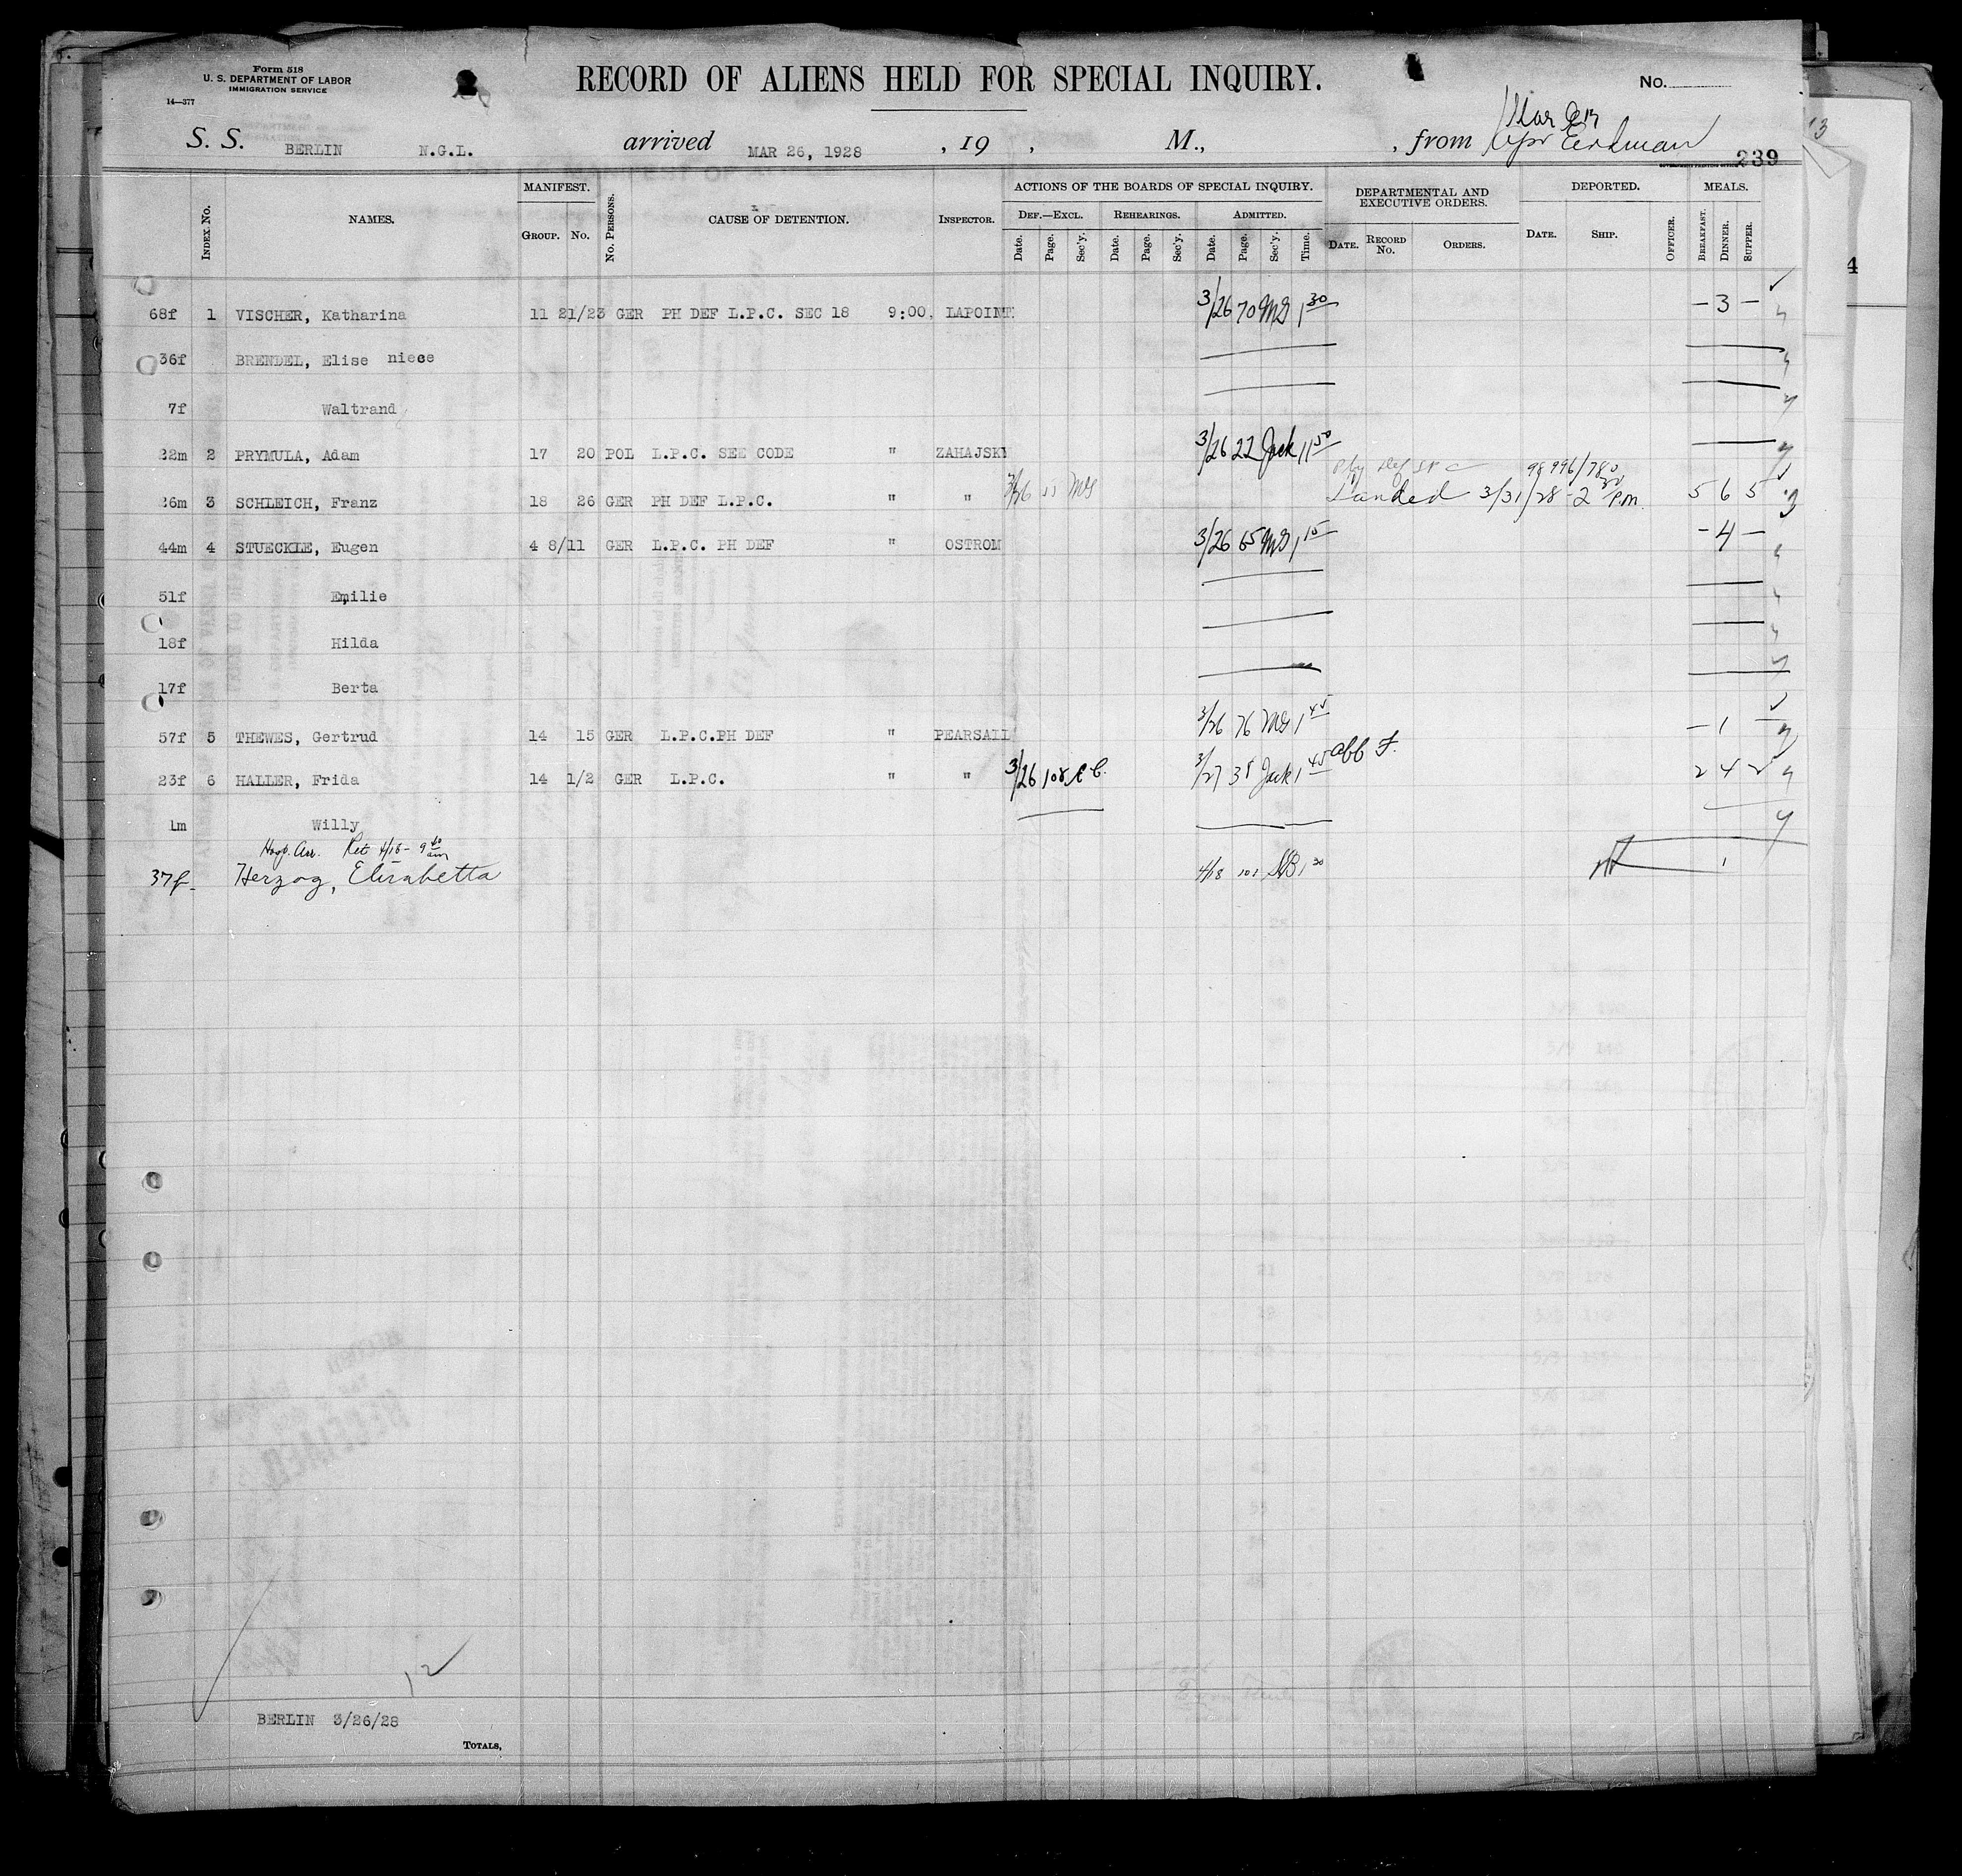 Form 518
U. S. DEPARTMENT OF LABOR
IMMIGRATION SERVICE
14—377
RECORD OF ALIENS HELD FOR SPECIAL INQUIRY.
No.
S. S. BERLIN N.G.L. arrived MAR 26, 1928, 19 , M., , from
239
INDEX No. NAMES. MANIFEST. GROUP. No. No. PERSONS. CAUSE OF DETENTION. INSPECTOR. ACTIONS OF THE BOARDS OF SPECIAL INQUIRY. DEF.—EXCL. Date. Page. Sec'y. REHEARINGS. Date. Page. Sec'y. ADMITTED. Date. Page. Sec'y. Time. DEPARTMENTAL AND EXECUTIVE ORDERS. DATE. RECORD No. ORDERS. DEPORTED. DATE. SHIP. OFFICER. MEALS. BREAKFAST. DINNER. SUPPER.
68f 1 VISCHER, Katharina 11 21/23 GER PH DEF L.P.C. SEC 18 9:00. LAPOINT 3/26 70 MG 1 30 – 3 –
36f BRENDEL, Elise niece
7f Waltrand
22m 2 PRYMULA, Adam 17 20 POL L.P.C. SEE CODE " ZAHAJSKY 3/26 22 Jack 11 50
26m 3 SCHLEICH, Franz 18 26 GER PH DEF L.P.C. " " 3/26 MG Landed 3/31/28 - 2 P.m. 5 6 5
44m 4 STUECKLE, Eugen 4 8/11 GER L.P.C. PH DEF " OSTROM 3/26 65 MG 1 15 – 4 –
51f Emilie
18f Hilda
17f Berta
57f 5 THEWES, Gertrud 14 15 GER L.P.C.PH DEF " PEARSALL 3/26 76 MG 1 45 – 1 –
23f 6 HALLER, Frida 14 1/2 GER L.P.C. " " 3/26 108 3/27 Jack 1 45 2 4 2
1m Willy
Hosp. Ret 4/18 - 9 am
37f. Herzog, Elisabetta 4/18 1 30 1
12
BERLIN 3/26/28
TOTALS,